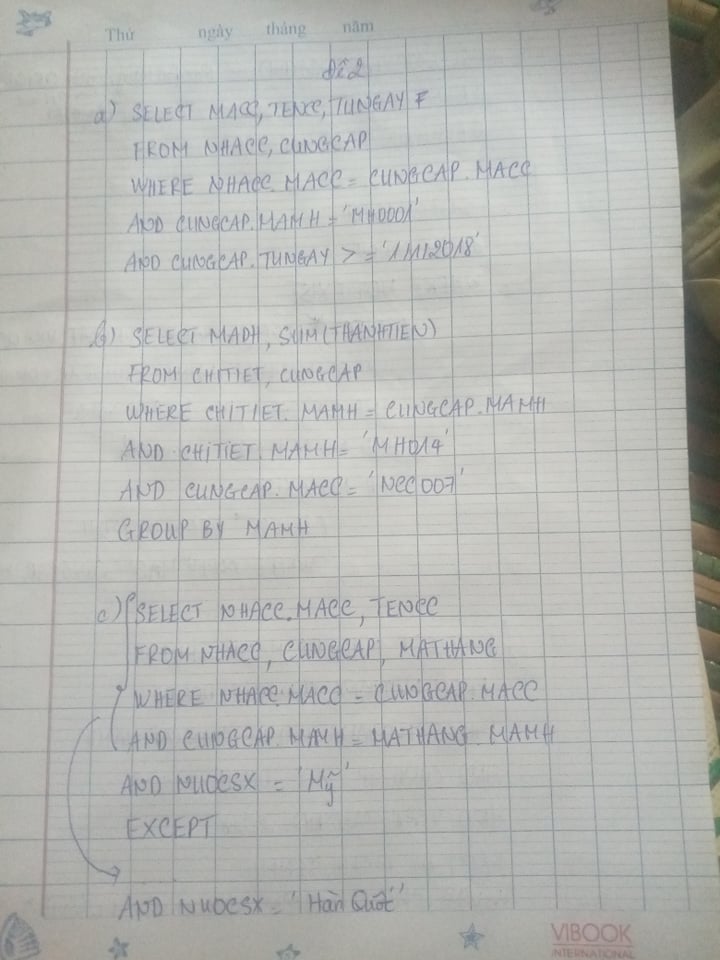 Thứ ngày tháng năm
Đề 2
a) SELECT MACC, TENCC, TUNGAY F
FROM NHACC, CUNGCAP
WHERE NHACC.MACC = CUNGCAP.MACC
AND CUNGCAP.MAMH = 'MH0001'
AND CUNGCAP.TUNGAY >= '1/1/2018'
b) SELECT MADH, SUM(THANHTIEN)
FROM CHITIET, CUNGCAP
WHERE CHITIET.MAMH = CUNGCAP.MAMH
AND CHITIET.MAMH = 'MH014'
AND CUNGCAP.MACC = 'NCC007'
GROUP BY MAMH
c) SELECT NHACC.MACC, TENCC
FROM NHACC, CUNGCAP, MATHANG
WHERE NHACC.MACC = CUNGCAP.MACC
AND CUNGCAP.MAMH = MATHANG.MAMH
AND NUOCSX = 'Mỹ'
EXCEPT
AND NUOCSX = 'Hàn Quốc'
VIBOOK
INTERNATIONAL